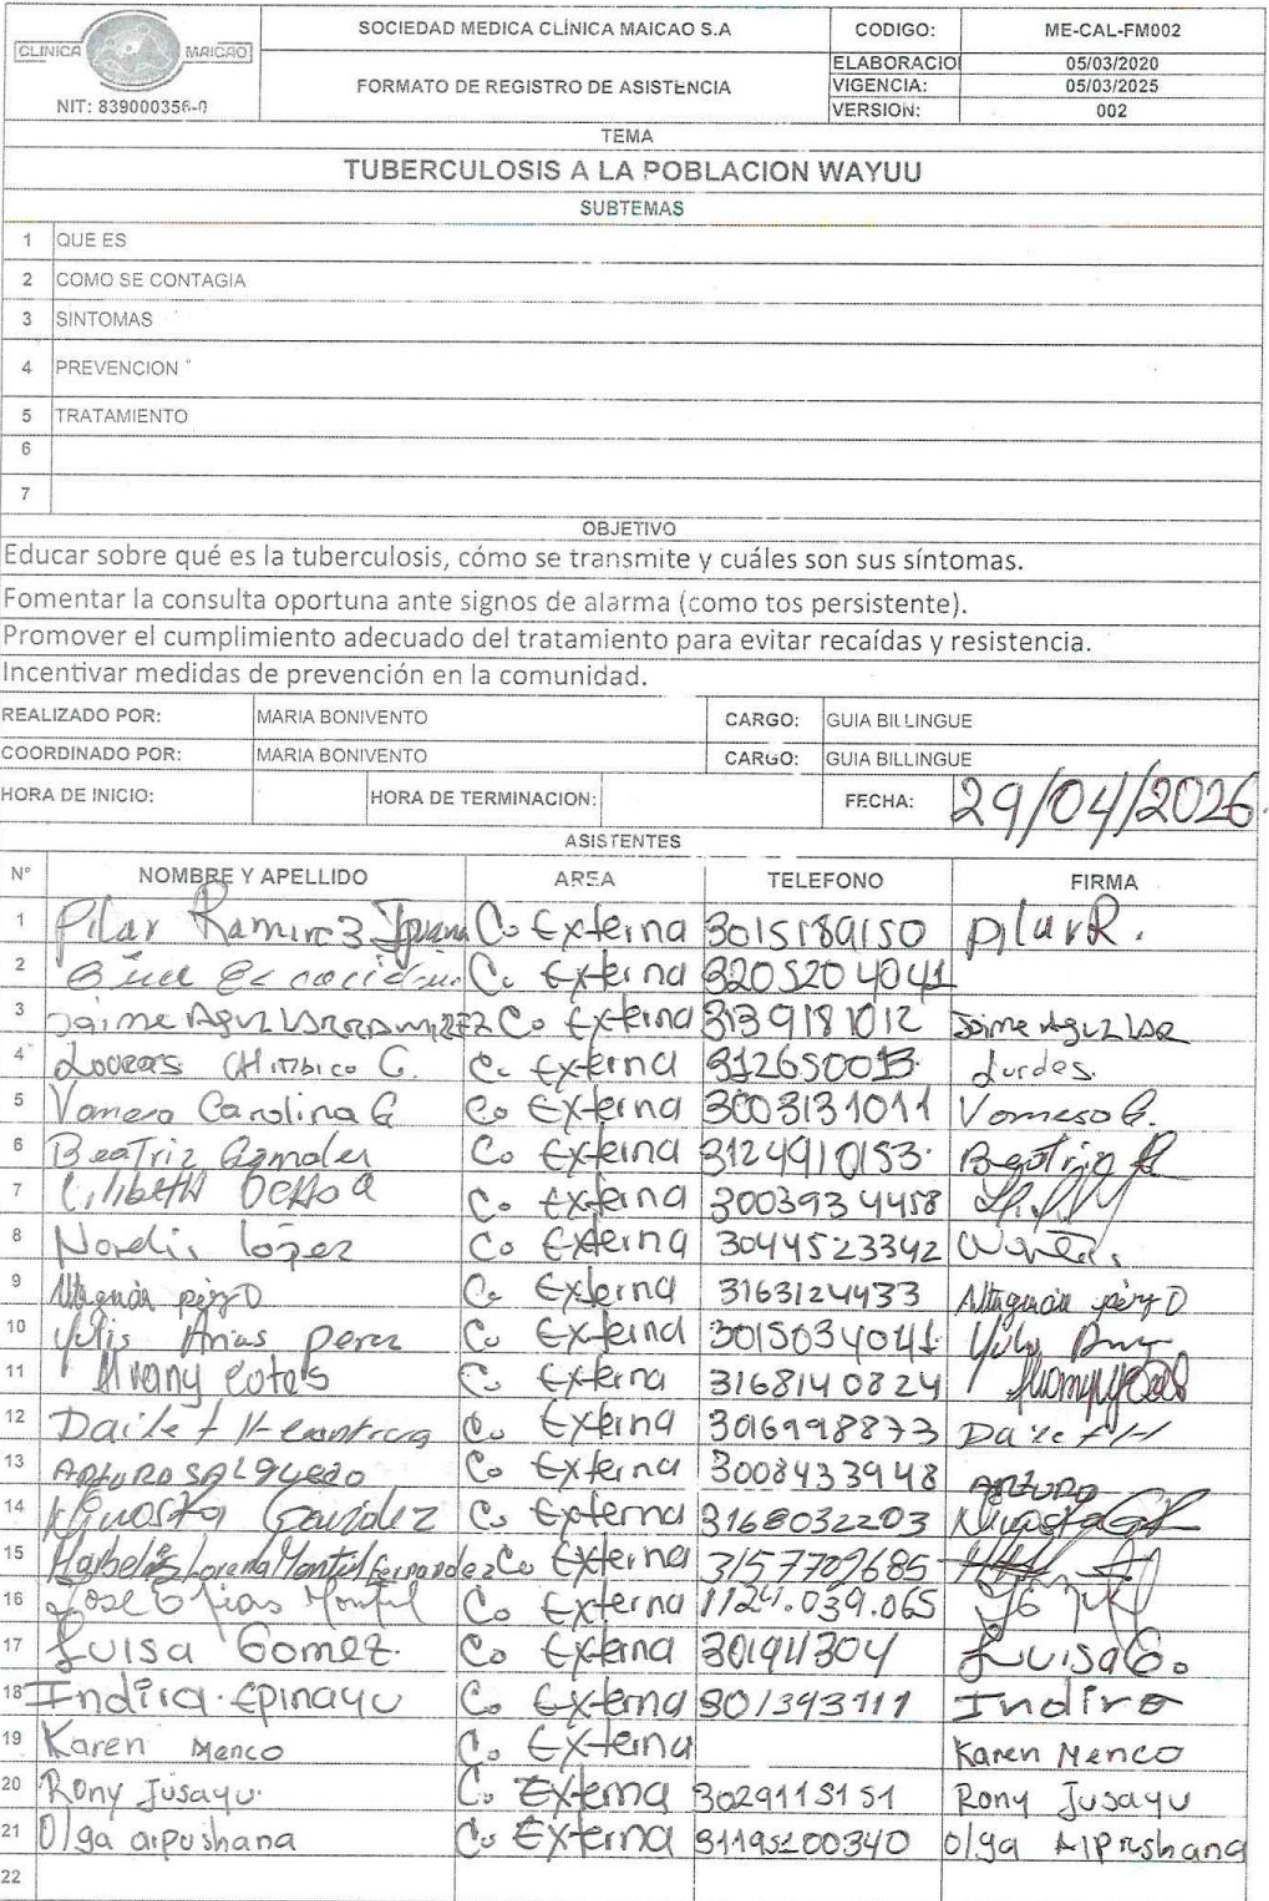 CLINICA MAICAO
NIT: 839000356-0
SOCIEDAD MEDICA CLÍNICA MAICAO S.A
CODIGO: ME-CAL-FM002
FORMATO DE REGISTRO DE ASISTENCIA
ELABORACIO 05/03/2020
VIGENCIA: 05/03/2025
VERSION: 002
TEMA
TUBERCULOSIS A LA POBLACION WAYUU
SUBTEMAS
1 QUE ES
2 COMO SE CONTAGIA
3 SINTOMAS
4 PREVENCION
5 TRATAMIENTO
6
7
OBJETIVO
Educar sobre qué es la tuberculosis, cómo se transmite y cuáles son sus síntomas.
Fomentar la consulta oportuna ante signos de alarma (como tos persistente).
Promover el cumplimiento adecuado del tratamiento para evitar recaídas y resistencia.
Incentivar medidas de prevención en la comunidad.
REALIZADO POR: MARIA BONIVENTO CARGO: GUIA BILLINGUE
COORDINADO POR: MARIA BONIVENTO CARGO: GUIA BILLINGUE
HORA DE INICIO: HORA DE TERMINACION: FECHA: 29/04/2026.
ASISTENTES
N° NOMBRE Y APELLIDO AREA TELEFONO FIRMA
1 Pilar Co Externa 3015189150 pilar R.
2 Co Externa 3205204041
3 Jaime Co Externa 3139181012 Jaime
4 Co Externa Lurdes.
5 Carolina G Co Externa 3003131011
6 Beatriz Co Externa 3124910153. Beatriz
7 Lilibeth Ochoa Co Externa 3003934458
8 López Co Externa 3044523342
9 Co Externa 3163124433
10 Yulis Arias perez Co Externa Yulis
11 Cotes Co Externa 3168140824
12 Co Externa 3016998873
13 ARTURO SALGUEDO Co Externa 3008433948 ARTURO
14 Co Externa 3168032203
15 Lorena Montiel Fernandez Co Externa 3157709685
16 Jose Montiel Co Externa 1124.039.065
17 Luisa Gomez. Co Externa Luisa G.
18 Indira Epinayu Co Externa 301393111 Indira
19 Karen Menco Co Externa Karen Menco
20 Rony Jusayu. Co Externa 3029115151 Rony Jusayu
21 Olga arpushana Co Externa 31195200340 Olga
22